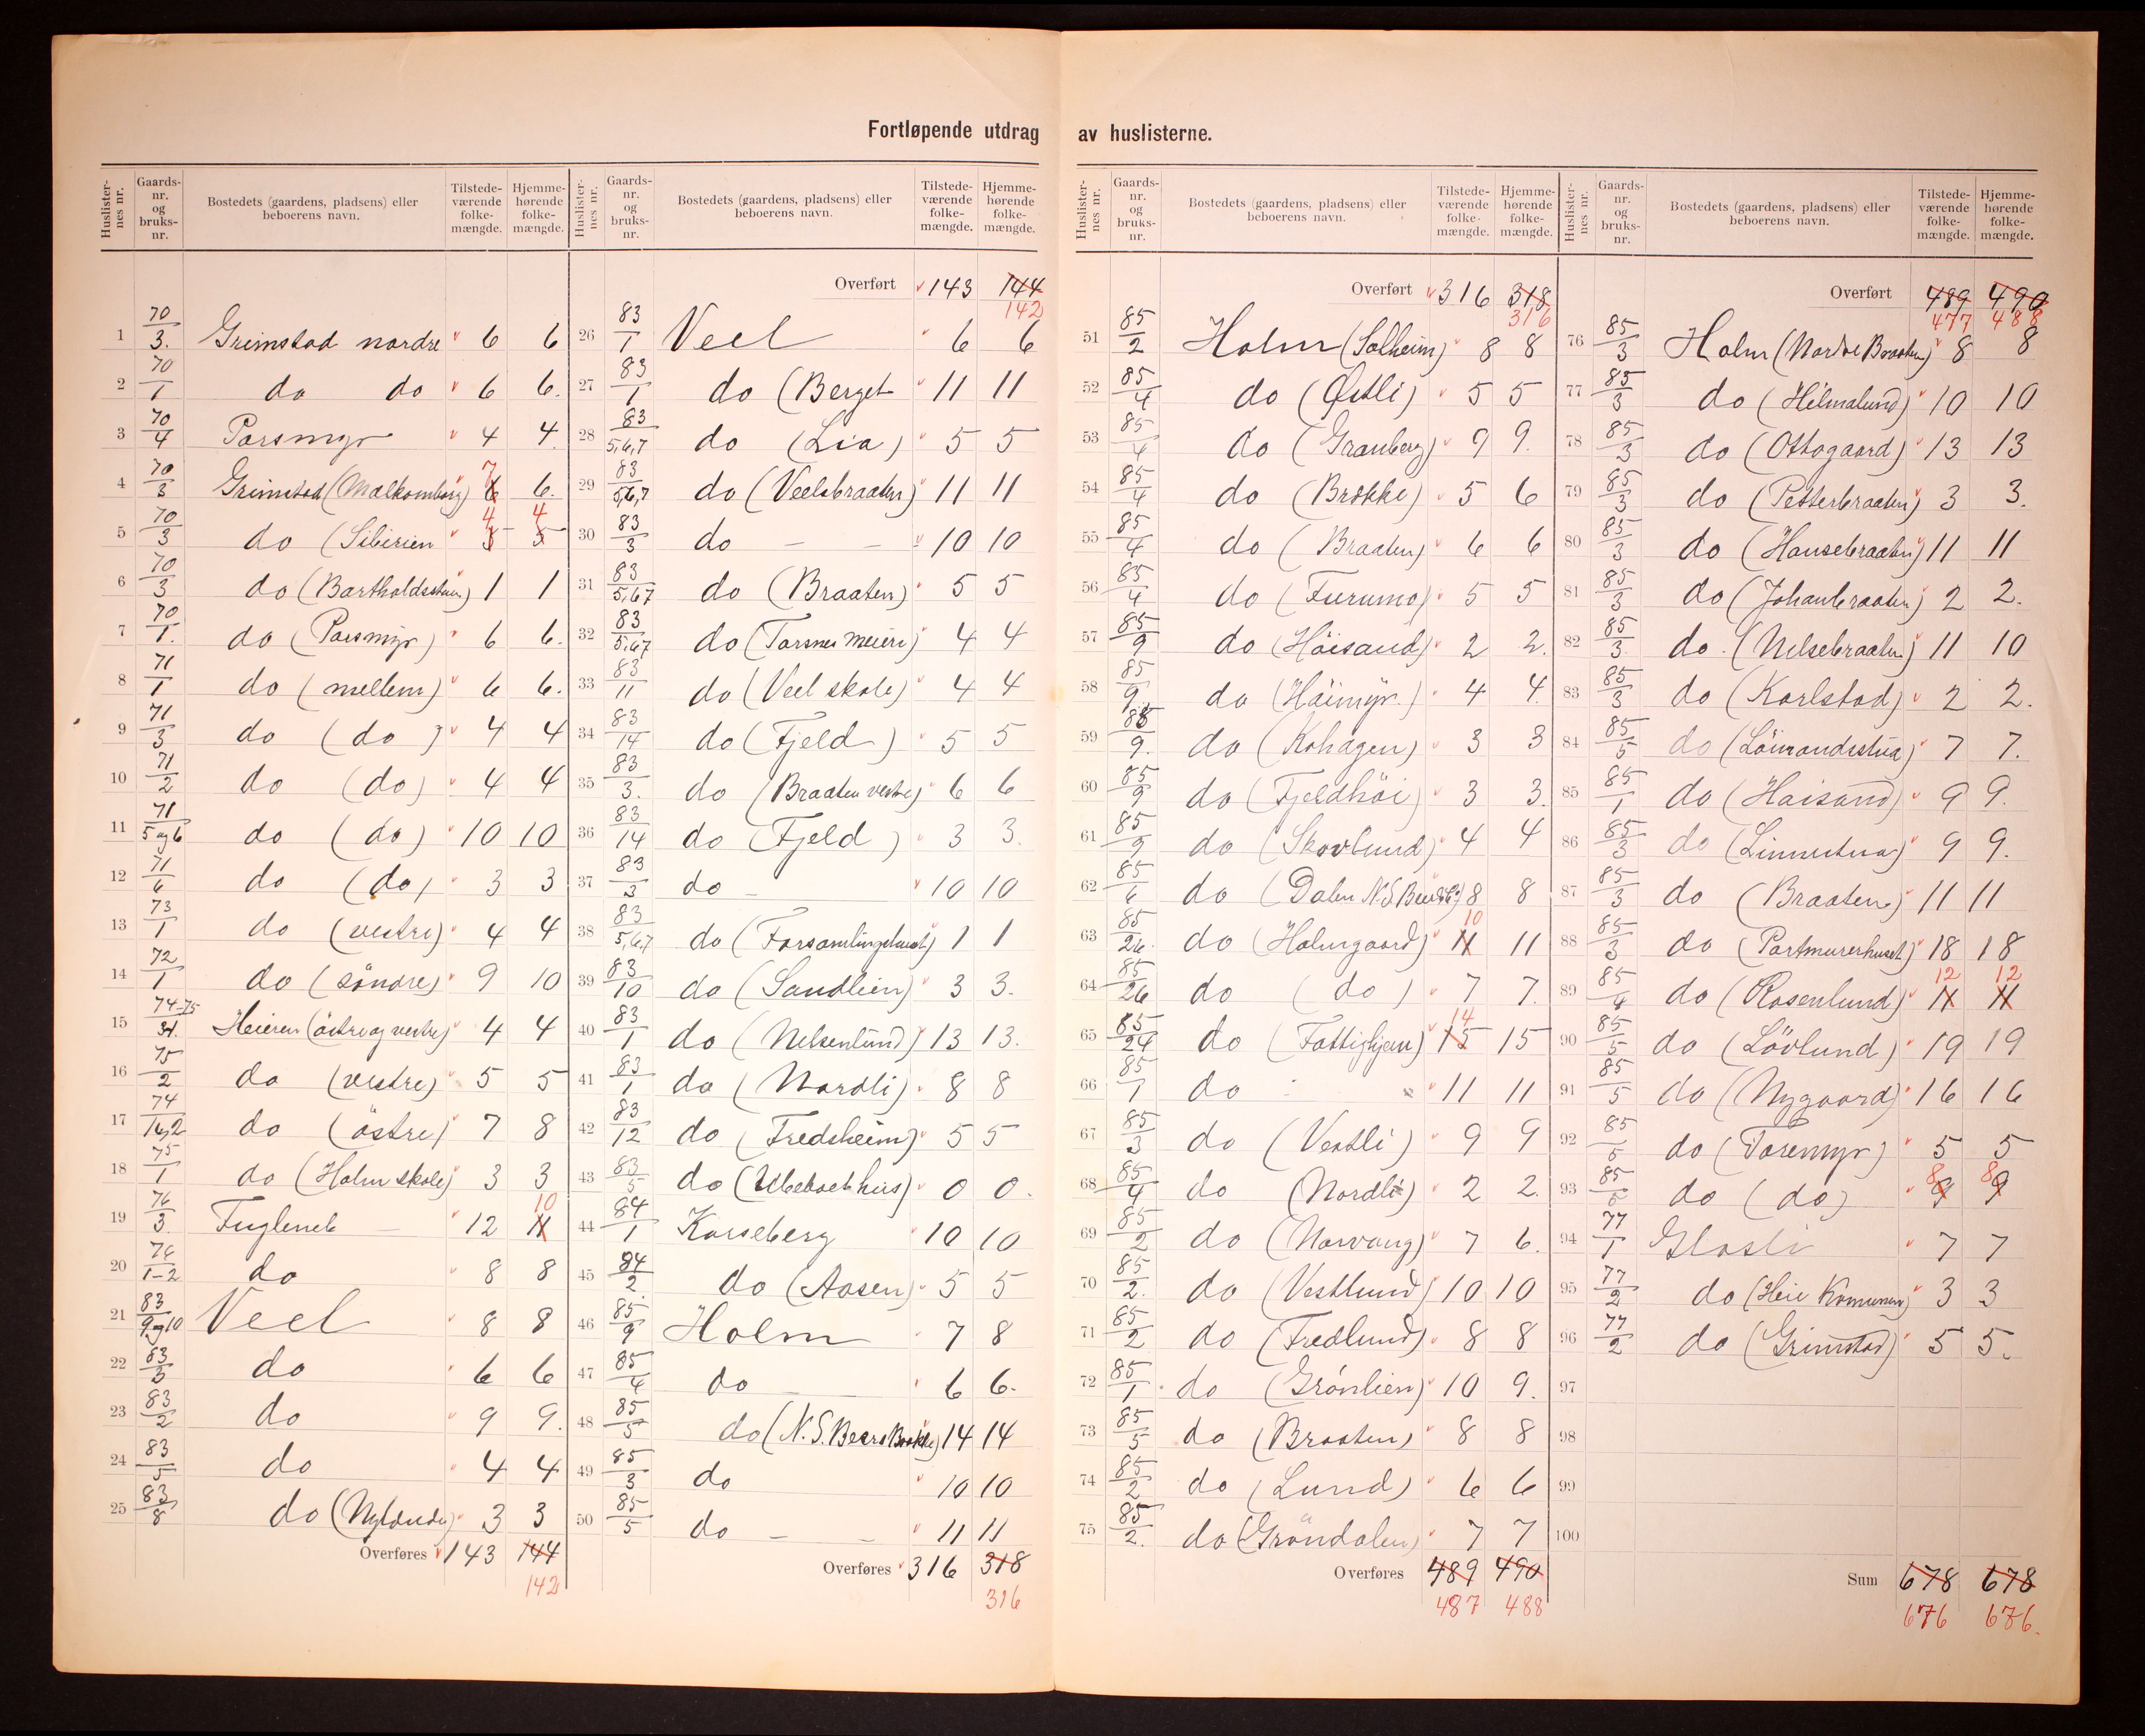 Fortløpende utdrag av huslisterne.
Huslisternes nr. Gaards-nr. og bruks-nr. Bostedets (gaardens, pladsens) eller beboerens navn. Tilstedeværende folkemængde. Hjemmehørende folkemængde.
1 70/3. Grimstad nordre 6 6
2 70/1 do do 6 6.
3 70/4 Parsmyr 4 4
4 70/3 Grimstad (Malkomborg) 6 7 6.
5 70/3 do (Sibirien 5 4 5 4
6 70/3 do (Bartholdsstuen) 1 1
7 70/1. do (Parsmyr) 6 6.
8 71/1 do (mellem) 6 6.
9 71/3 do (do) 4 4
10 71/2 do (do) 4 4
11 71/5 og 6 do (do) 10 10
12 71/6 do (do) 3 3
13 73/1 do (vestre) 4 4
14 72/1 do (söndre) 9 10
15 74-75/31. Heieren (östre og vestre) 4 4
16 75/2 do (vestre) 5 5
17 74/1&2 do (östre) 7 8
18 75/1 do (Holm skole) 3 3
19 76/3. Fugleneb 12 11 10
20 76/1-2 do 8 8
21 83/9 og 10 Veel 8 8
22 83/3 do 6 6
23 83/2 do 9 9.
24 83/5 do 4 4
25 83/8 do (Nylænde) 3 3
Overføres 143 144
142
Huslisternes nr. Gaards-nr. og bruks-nr. Bostedets (gaardens, pladsens) eller beboerens navn. Tilstedeværende folkemængde. Hjemmehørende folkemængde.
Overført 143 144
142
26 83/1 Veel 6 6
27 83/1 do (Berget 11 11
28 83/5,6,7 do (Lia) 5 5
29 83/5,6,7 do (Veelsbraaten) 11 11
30 83/3 do 10 10
31 83/5,6,7 do (Braaten) 5 5
32 83/5,6,7 do (Torsnes meieri) 4 4
33 83/11 do (Veel skole) 4 4
34 83/14 do (Fjeld) 5 5
35 83/3. do (Braaten vestre) 6 6
36 83/14 do (Fjeld) 3 3.
37 83/3 do 10 10
38 83/5,6,7 do (Forsamlingshuset) 1 1
39 83/10 do (Sandlien) 3 3.
40 83/1 do (Nelsenlund) 13 13.
41 83/1 do (Nordli) 8 8
42 83/12 do (Fredsheim) 5 5
43 83/5 do (Ubeboet hus) 0 0.
44 84/1 Korseberg 10 10
45 84/2. do (Aasen) 5 5
46 85/9 Holm 7 8
47 85/4 do 6 6.
48 85/5 do (N.S.Beers Bakke) 14 14
49 85/3 do 10 10
50 85/5 do 11 11
Overføres 316 318
316
Huslisternes nr. Gaards-nr. og bruks-nr. Bostedets (gaardens, pladsens) eller beboerens navn. Tilstedeværende folkemængde. Hjemmehørende folkemængde.
Overført 316 318
316
51 85/2 Holm (Solheim) 8 8
52 85/4 do (Østli) 5 5
53 85/4 do (Granberg) 9 9.
54 85/4 do (Brække) 5 6
55 85/4 do (Braaten) 6 6
56 85/4 do (Furumo) 5 5
57 85/9 do (Höisand) 2 2.
58 85/9 do (Höimyr.) 4 4.
59 85/9. do (Kohagen) 3 3
60 85/9 do (Fjeldhöi) 3 3.
61 85/9 do (Skovlund) 4 4
62 85/6 do (Dalen N.S. 8 8
63 85/26. do (Holmgaard) 11 10 11
64 85/26 do (do) 7 7.
65 85/24 do (Fattighjem) 15 14 15
66 85/1 do 11 11
67 85/3 do (Vestli) 9 9
68 85/4 do (Nordli) 2 2.
69 85/2 do (Norvang) 7 6.
70 85/2. do (Vestlund) 10 10
71 85/2 do (Fredlund) 8 8
72 85/1 do (Grönlien) 10 9.
73 85/5 do (Braaten) 8 8
74 85/2 do (Lund) 6 6
75 85/2. do (Gröndalen) 7 7
Overføres 489 490
487 488
Huslisternes nr. Gaards-nr. og bruks-nr. Bostedets (gaardens, pladsens) eller beboerens navn. Tilstedeværende folkemængde. Hjemmehørende folkemængde.
Overført 489 490
477 488
76 85/3 Holm (Nordre Braaten) 8 8
77 85/3 do (Hilmalund) 10 10
78 85/3 do (Ottogaard) 13 13
79 85/3 do (Petterbraaten) 3 3.
80 85/3 do (Hansebraaten) 11 11
81 85/3 do (Johanbraaten) 2 2.
82 85/3. do. (Nelsebraaten) 11 10
83 85/3 do (Karlstad) 2 2.
84 85/5 do (Löitnandsstua) 7 7.
85 85/1 do (Høisand) 9 9.
86 85/3 do (Linnestua) 9 9.
87 85/3 do (Braaten) 11 11
88 85/3 do (Portmurerhuset) 18 18
89 85/4 do (Rosenlund) 11 12 11 12
90 85/5 do (Lövlund) 19 19
91 85/5 do (Nygaard) 16 16
92 85/5 do (Toremyr) 5 5
93 85/5 do (do) 9 8 9 8
94 77/1 Glosli 7 7
95 77/2 do (Heie Komunen) 3 3
96 77/2 do (Grimstad) 5 5.
97
98
99
100
Sum 678 678
676 676.